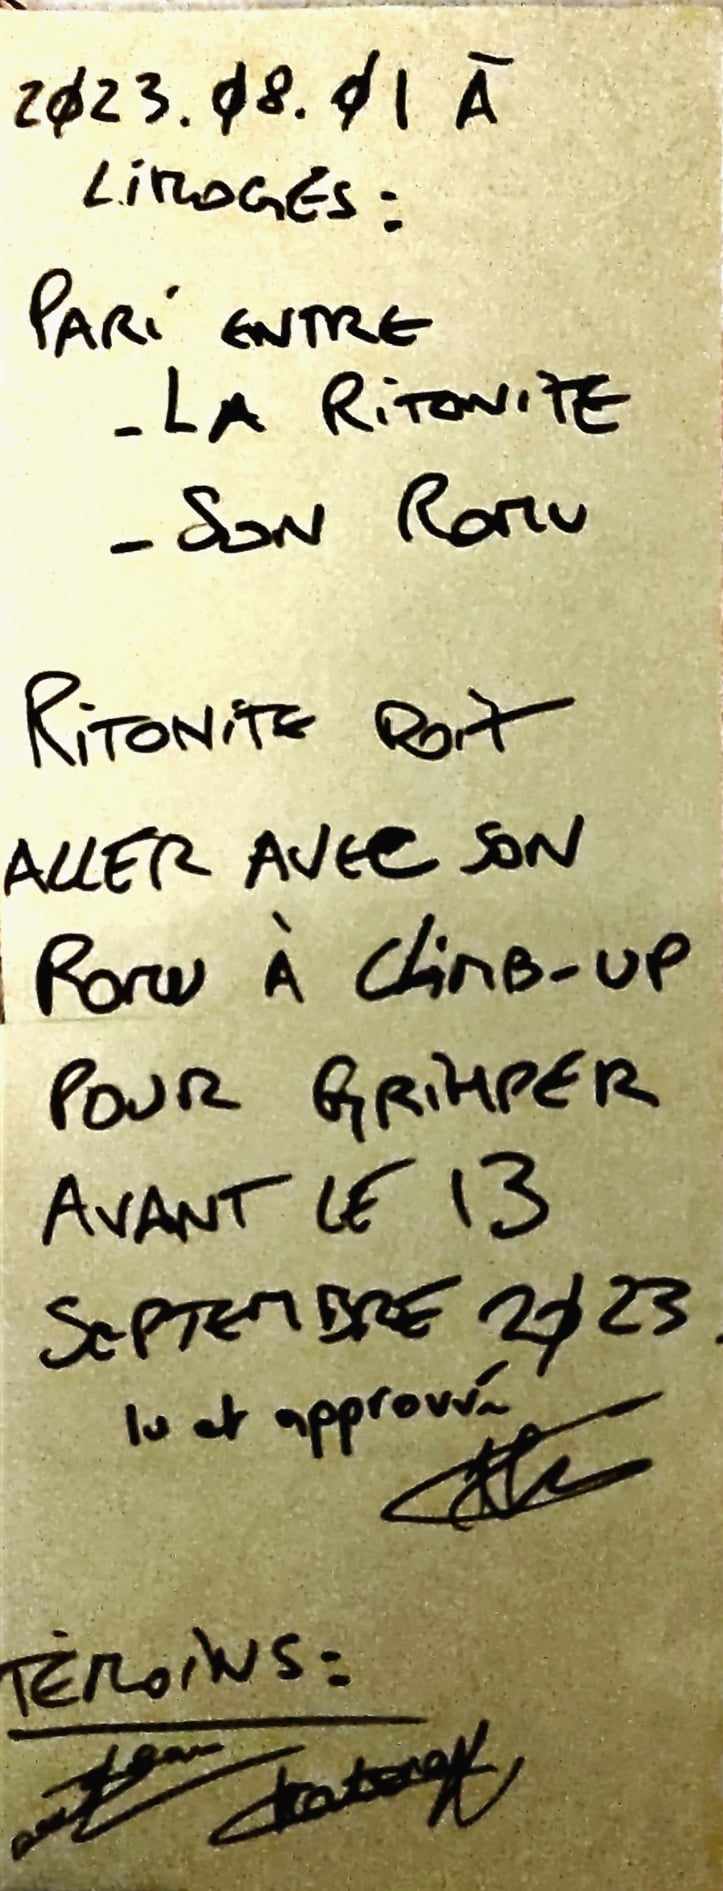 2023.08.01 À
LIMOGES :
PARI ENTRE
- LA RITONITE
- SON ROMU
RITONITE DOIT
ALLER AVEC SON
ROMU À CLIMB-UP
POUR GRIMPER
AVANT LE 13
SEPTEMBRE 2023.
lu et approuvé
TÉMOINS :